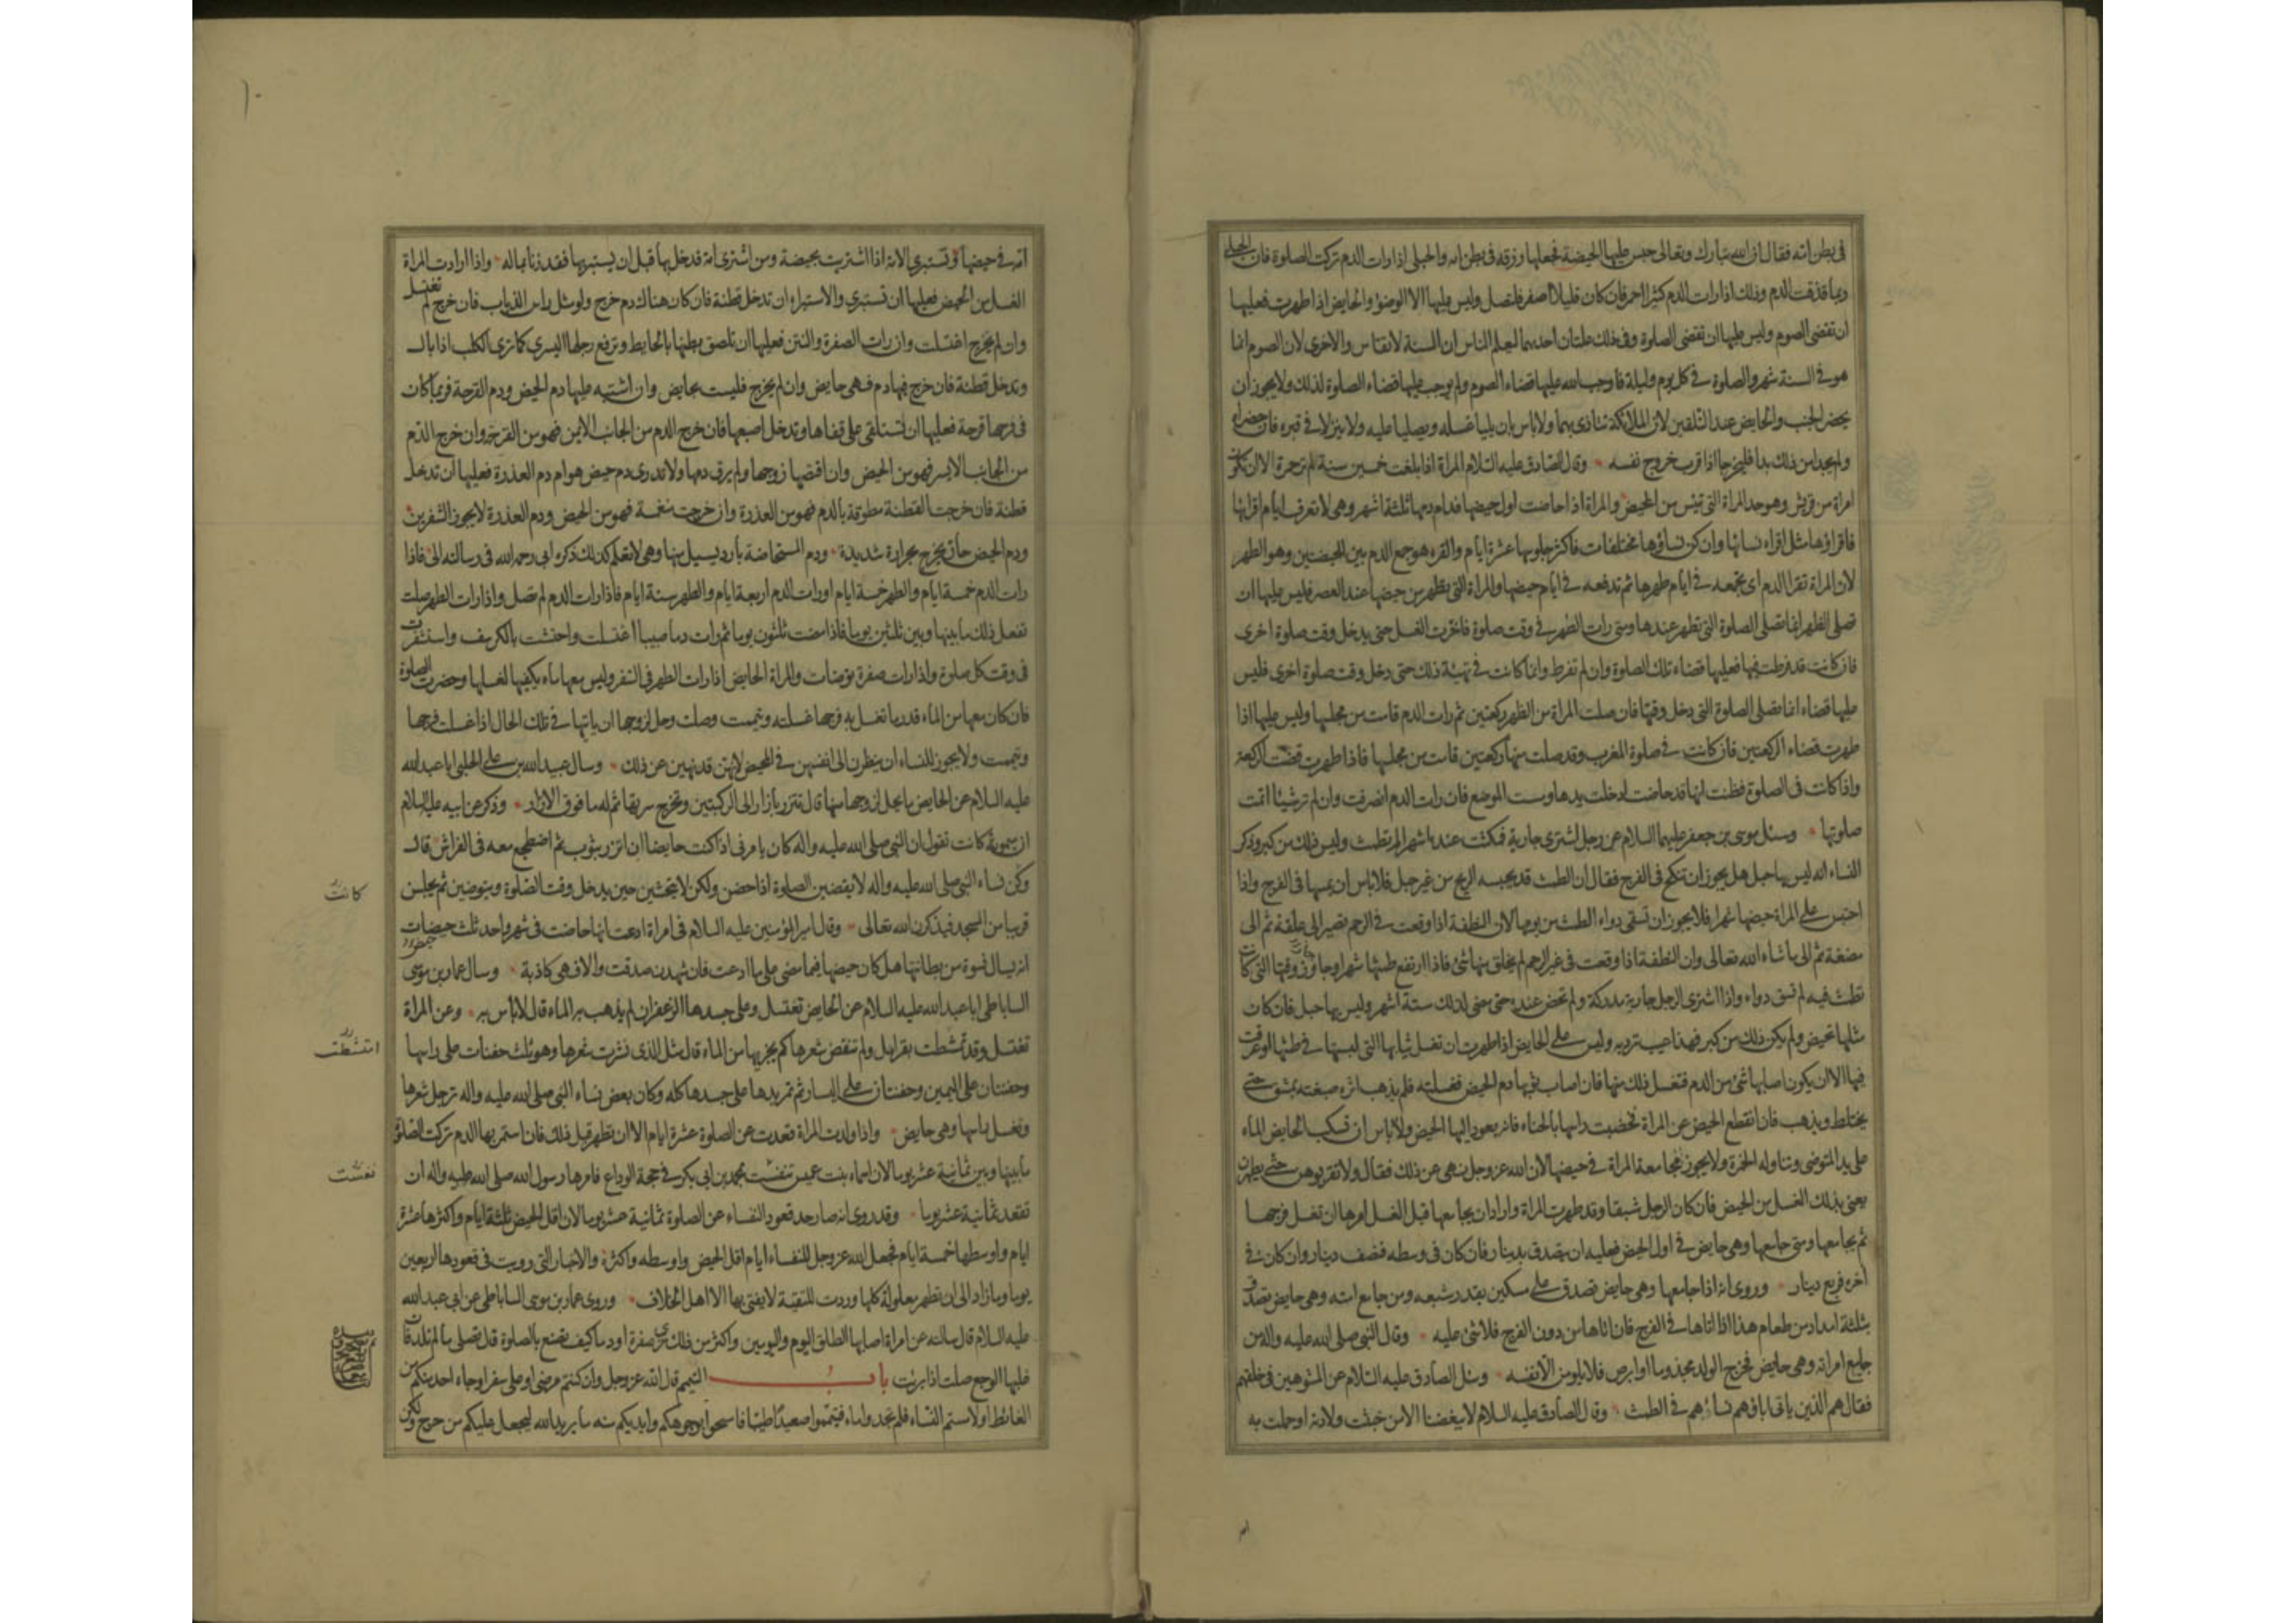 فى بطن امه فقال ان الله تبارك وتعالى حبس عليها الحيضة فجعلها رزقه فى بطن امه والحبلى اذا رات الدم تركت الصلوة فان الحبلى
ربما قذفت الدم وذلك اذا رات الدم كثيرا احمر فان كان قليلا اصفر فلتصل وليس عليها الا الوضوء والحايض اذا طهرت فعليها
ان تقضى الصوم وليس عليها ان تقضى الصلوة وفى ذلك علتان احديهما ليعلم الناس ان السنة لا تقاس والاخرى لان الصوم انما
هو فى السنة شهر والصلوة فى كل يوم وليلة فاوجب الله عليها قضاء الصوم ولم يوجب عليها قضاء الصلوة لذلك ولا يجوز ان
يحضر الجنب والحايض عند التلقين لان الملائكة تتاذى بهما ولا باس بان يليا غسله ويصليا عليه ولا ينزلا فى قبره فان حضراه
ولم يجدا من ذلك بدا فليخرجا اذا قرب خروج نفسه وقال الصادق عليه السلام المراة اذا بلغت خمسين سنة لم تر حمرة الا ان تكون
امراة من قريش وهو حد المراة التى تيئس من الحيض والمراة اذا حاضت اول حيضها فدام دمها ثلثة اشهر وهى لا تعرف ايام اقرائها
فاقراؤها مثل اقراء نسائها وان كن نساؤها مختلفات فاكثر جلوسها عشرة ايام والقرء هو جمع الدم بين الحيضتين وهو الطهر
لان المراة تقرا الدم اى تجمعه فى ايام طهرها ثم تدفعه فى ايام حيضها والمراة التى تطهر من حيضها عند العصر فليس عليها ان
تصلى الظهر انما تصلى الصلوة التى تطهر عندها ومتى رات الطهر فى وقت صلوة فاخرت الغسل حتى يدخل وقت صلوة اخرى
فان كانت قد فرطت فيها فعليها قضاء تلك الصلوة وان لم تفرط وانما كانت فى تهيئة ذلك حتى دخل وقت صلوة اخرى فليس
عليها قضاء انما تصلى الصلوة التى دخل وقتها فان صلت المراة من الظهر ركعتين ثم رات الدم قامت من مجلسها وليس عليها اذا
طهرت قضاء الركعتين فان كانت فى صلوة المغرب وقد صلت منها ركعتين قامت من مجلسها فاذا طهرت قضت الركعة
واذا كانت فى الصلوة فظنت انها قد حاضت ادخلت يدها ومست الموضع فان رات الدم انصرفت وان لم تر شيئا اتمت
صلوتها وسئل موسى بن جعفر عليهما السلام عن رجل اشترى جارية فمكثت عنده اشهرا لم تطمث وليس ذلك من كبر وذكر
النساء انه ليس بها حبل هل يجوز ان تنكح فى الفرج فقال ان الطمث قد يحبسه الريح من غير حبل فلا باس ان يمسها فى الفرج واذا
احتبس على المراة حيضها شهرا فلا يجوز ان تسقى دواء الطمث من يومها لان النطفة اذا وقعت فى الرحم تصير الى علقة ثم الى
مضغة ثم الى ما شاء الله تعالى وان النطفة اذا وقعت فى غير الرحم لم يخلق منها شئ فاذا ارتفع طمثها شهرا وجاوز وقتها التى كانت
تطمث فيه لم تسق دواء واذا اشترى الرجل جارية مدركة ولم تحض عنده حتى مضى لذلك ستة اشهر وليس بها حبل فان كان
مثلها تحيض ولم يكن ذلك من كبر فهذا عيب ترد به وليس على الحايض اذا طهرت ان تغسل ثيابها التى لبستها فى طمثها او عرقت
فيها الا ان يكون اصابها شئ من الدم فتغسل ذلك منها فان اصاب ثوبها دم الحيض فغسلته فلم يذهب اثره صبغته بمشق حتى
يختلط ويذهب فان انقطع الحيض عن المراة تخضبت راسها بالحناء فانه يعود اليها الحيض ولا باس ان تسكب الحايض الماء
على يد المتوضى وتناوله الخمرة ولا يجوز مجامعة المراة فى حيضها لان الله عز وجل نهى عن ذلك فقال ولا تقربوهن حتى يطهرن
يعنى بذلك الغسل من الحيض فان كان الرجل شبقا وقد طهرت المراة واراد ان يجامعها قبل الغسل امرها ان تغسل فرجها
ثم يجامعها ومتى جامعها وهى حايض فى اول الحيض فعليه ان يتصدق بدينار فان كان فى وسطه فنصف دينار وان كان فى
اخره فربع دينار وروى انه اذا جامعها وهى حايض تصدق على مسكين بقدر شبعه ومن جامع امته وهى حايض تصدق
بثلثة امداد من طعام هذا اذا اتاها فى الفرج فان اتاها من دون الفرج فلا شئ عليه وقال النبى صلى الله عليه واله من
جامع امراته وهى حايض فخرج الولد مجذوما او ابرص فلا يلومن الا نفسه وسئل الصادق عليه السلام عن المشوهين فى خلقهم
فقال هم الذين ياتى اباؤهم نساءهم فى الطمث وقال الصادق عليه السلام لا يبغضنا الا من خبثت ولادته او حملت به
امه فى حيضها وتستبرى الامة اذا اشتريت بحيضة ومن اشترى امة فدخل بها قبل ان يستبريها فقد زنا بماله واذا ارادت المراة
الغسل من الحيض فعليها ان تستبرى والاستبراء ان تدخل قطنة فان كان هناك دم خرج ولو مثل راس الذباب فان خرج لم تغتسل
وان لم يخرج اغتسلت وان رات الصفرة والنتن فعليها ان تلصق بطنها بالحايط وترفع رجلها اليسرى كما ترى الكلب اذا بال
وتدخل قطنة فان خرج فيها دم فهى حايض وان لم يخرج فليست بحايض وان اشتبه عليها دم الحيض ودم القرحة فربما كان
فى فرجها قرحة فعليها ان تستلقى على قفاها وتدخل اصبعها فان خرج الدم من الجانب الايمن فهو من القرحة وان خرج الدم
من الجانب الايسر فهو من الحيض وان اقتضها زوجها ولم يرق دمها ولا تدرى دم حيض هو ام دم العذرة فعليها ان تدخل
قطنة فان خرجت القطنة مطوقة بالدم فهو من العذرة وان خرجت منغمسة فهو من الحيض ودم العذرة لا يجوز الشفرين
ودم الحيض حار يخرج بحرارة شديدة ودم المستحاضة بارد يسيل منها وهى لا تعلم كذلك ذكره ابى رحمه الله فى رسالته الى فاذا
رات الدم خمسة ايام والطهر خمسة ايام او رات الدم اربعة ايام والطهر ستة ايام فاذا رات الدم لم تصل واذا رات الطهر صلت
تفعل ذلك ما بينها وبين ثلثين يوما فاذا مضت ثلثون يوما ثم رات دما صبيبا اغتسلت واحتشت بالكرسف واستثفرت
فى وقت كل صلوة واذا رات صفرة توضات والمراة الحايض اذا رات الطهر فى السفر وليس معها ماء يكفيها لغسلها وحضرت الصلوة
فان كان معها من الماء قدر ما تغسل به فرجها غسلته وتيممت وصلت وحل لزوجها ان ياتيها فى تلك الحال اذا غسلت فرجها
وتيممت ولا يجوز للنساء ان ينظرن الى انفسهن فى المحيض لانهن قد نهين عن ذلك وسال عبيد الله بن على الحلبى ابا عبد الله
عليه السلام عن الحايض ما يحل لزوجها منها قال تتزر بازار الى الركبتين وتخرج سرتها ثم له ما فوق الازار وذكر عن ابيه عليه السلام
ان ميمونة كانت تقول ان النبى صلى الله عليه واله كان يامرنى اذا كنت حايضا ان اتزر بثوب ثم اضطجع معه فى الفراش قال
وكن نساء النبى صلى الله عليه واله لا يقضين الصلوة اذا حضن ولكن لا يتحشين حين يدخل وقت الصلوة ويتوضين ثم يجلسن
كانت
قريبا من المسجد فيذكرن الله تعالى وقال امير المؤمنين عليه السلام فى امراة ادعت انها حاضت فى شهر واحد ثلث حيضات
انه يسال نسوة من بطانتها هل كان حيضها فيما مضى على ما ادعت فان شهدن صدقت والا فهى كاذبة وسال عمار بن موسى
الساباطى ابا عبد الله عليه السلام عن الحايض تغتسل وعلى جسدها الزعفران لم يذهب به الماء قال لا باس به وعن المراة
تغتسل وقد تمشطت بقرامل ولم تنقض شعرها كم يجزيها من الماء قال مثل الذى نشرت شعرها وهو ثلث حفنات على راسها
امتشطت
وحفنتان على اليمين وحفنتان على اليسار ثم تمر يدها على جسدها كله وكان بعض نساء النبى صلى الله عليه واله ترجل شعرها
وتغسل راسها وهى حايض واذا ولدت المراة قعدت عن الصلوة عشرة ايام الا ان تطهر قبل ذلك فان استمر بها الدم تركت الصلوة
ما بينها وبين ثمانية عشر يوما لان اسماء بنت عميس تنفست بمحمد بن ابى بكر فى حجة الوداع فامرها رسول الله صلى الله عليه واله ان
نفست
تقعد ثمانية عشر يوما وقد روى انه صار حد قعود النفساء عن الصلوة ثمانية عشر يوما لان اقل الحيض ثلثة ايام واكثرها عشرة
ايام واوسطها خمسة ايام فجعل الله عز وجل للنفساء ايام اقل الحيض واوسطه واكثره والاخبار التى رويت فى قعودها اربعين
يوما وما زاد الى ان تطهر معلولة كلها وردت للتقية لا يفتى بها الا اهل الخلاف وروى عمار بن موسى الساباطى عن ابى عبد الله
عليه السلام قال سالته عن امراة اصابها الطلق اليوم واليومين واكثر من ذلك ترى صفرة او دما كيف تصنع بالصلوة قال تصلى ما لم تلد فان
غلبها الوجع صلت اذا برئت باب التيمم قال الله عز وجل وان كنتم مرضى او على سفر او جاء احد منكم من
الغائط او لامستم النساء فلم تجدوا ماء فتيمموا صعيدا طيبا فامسحوا بوجوهكم وايديكم منه ما يريد الله ليجعل عليكم من حرج ولكن